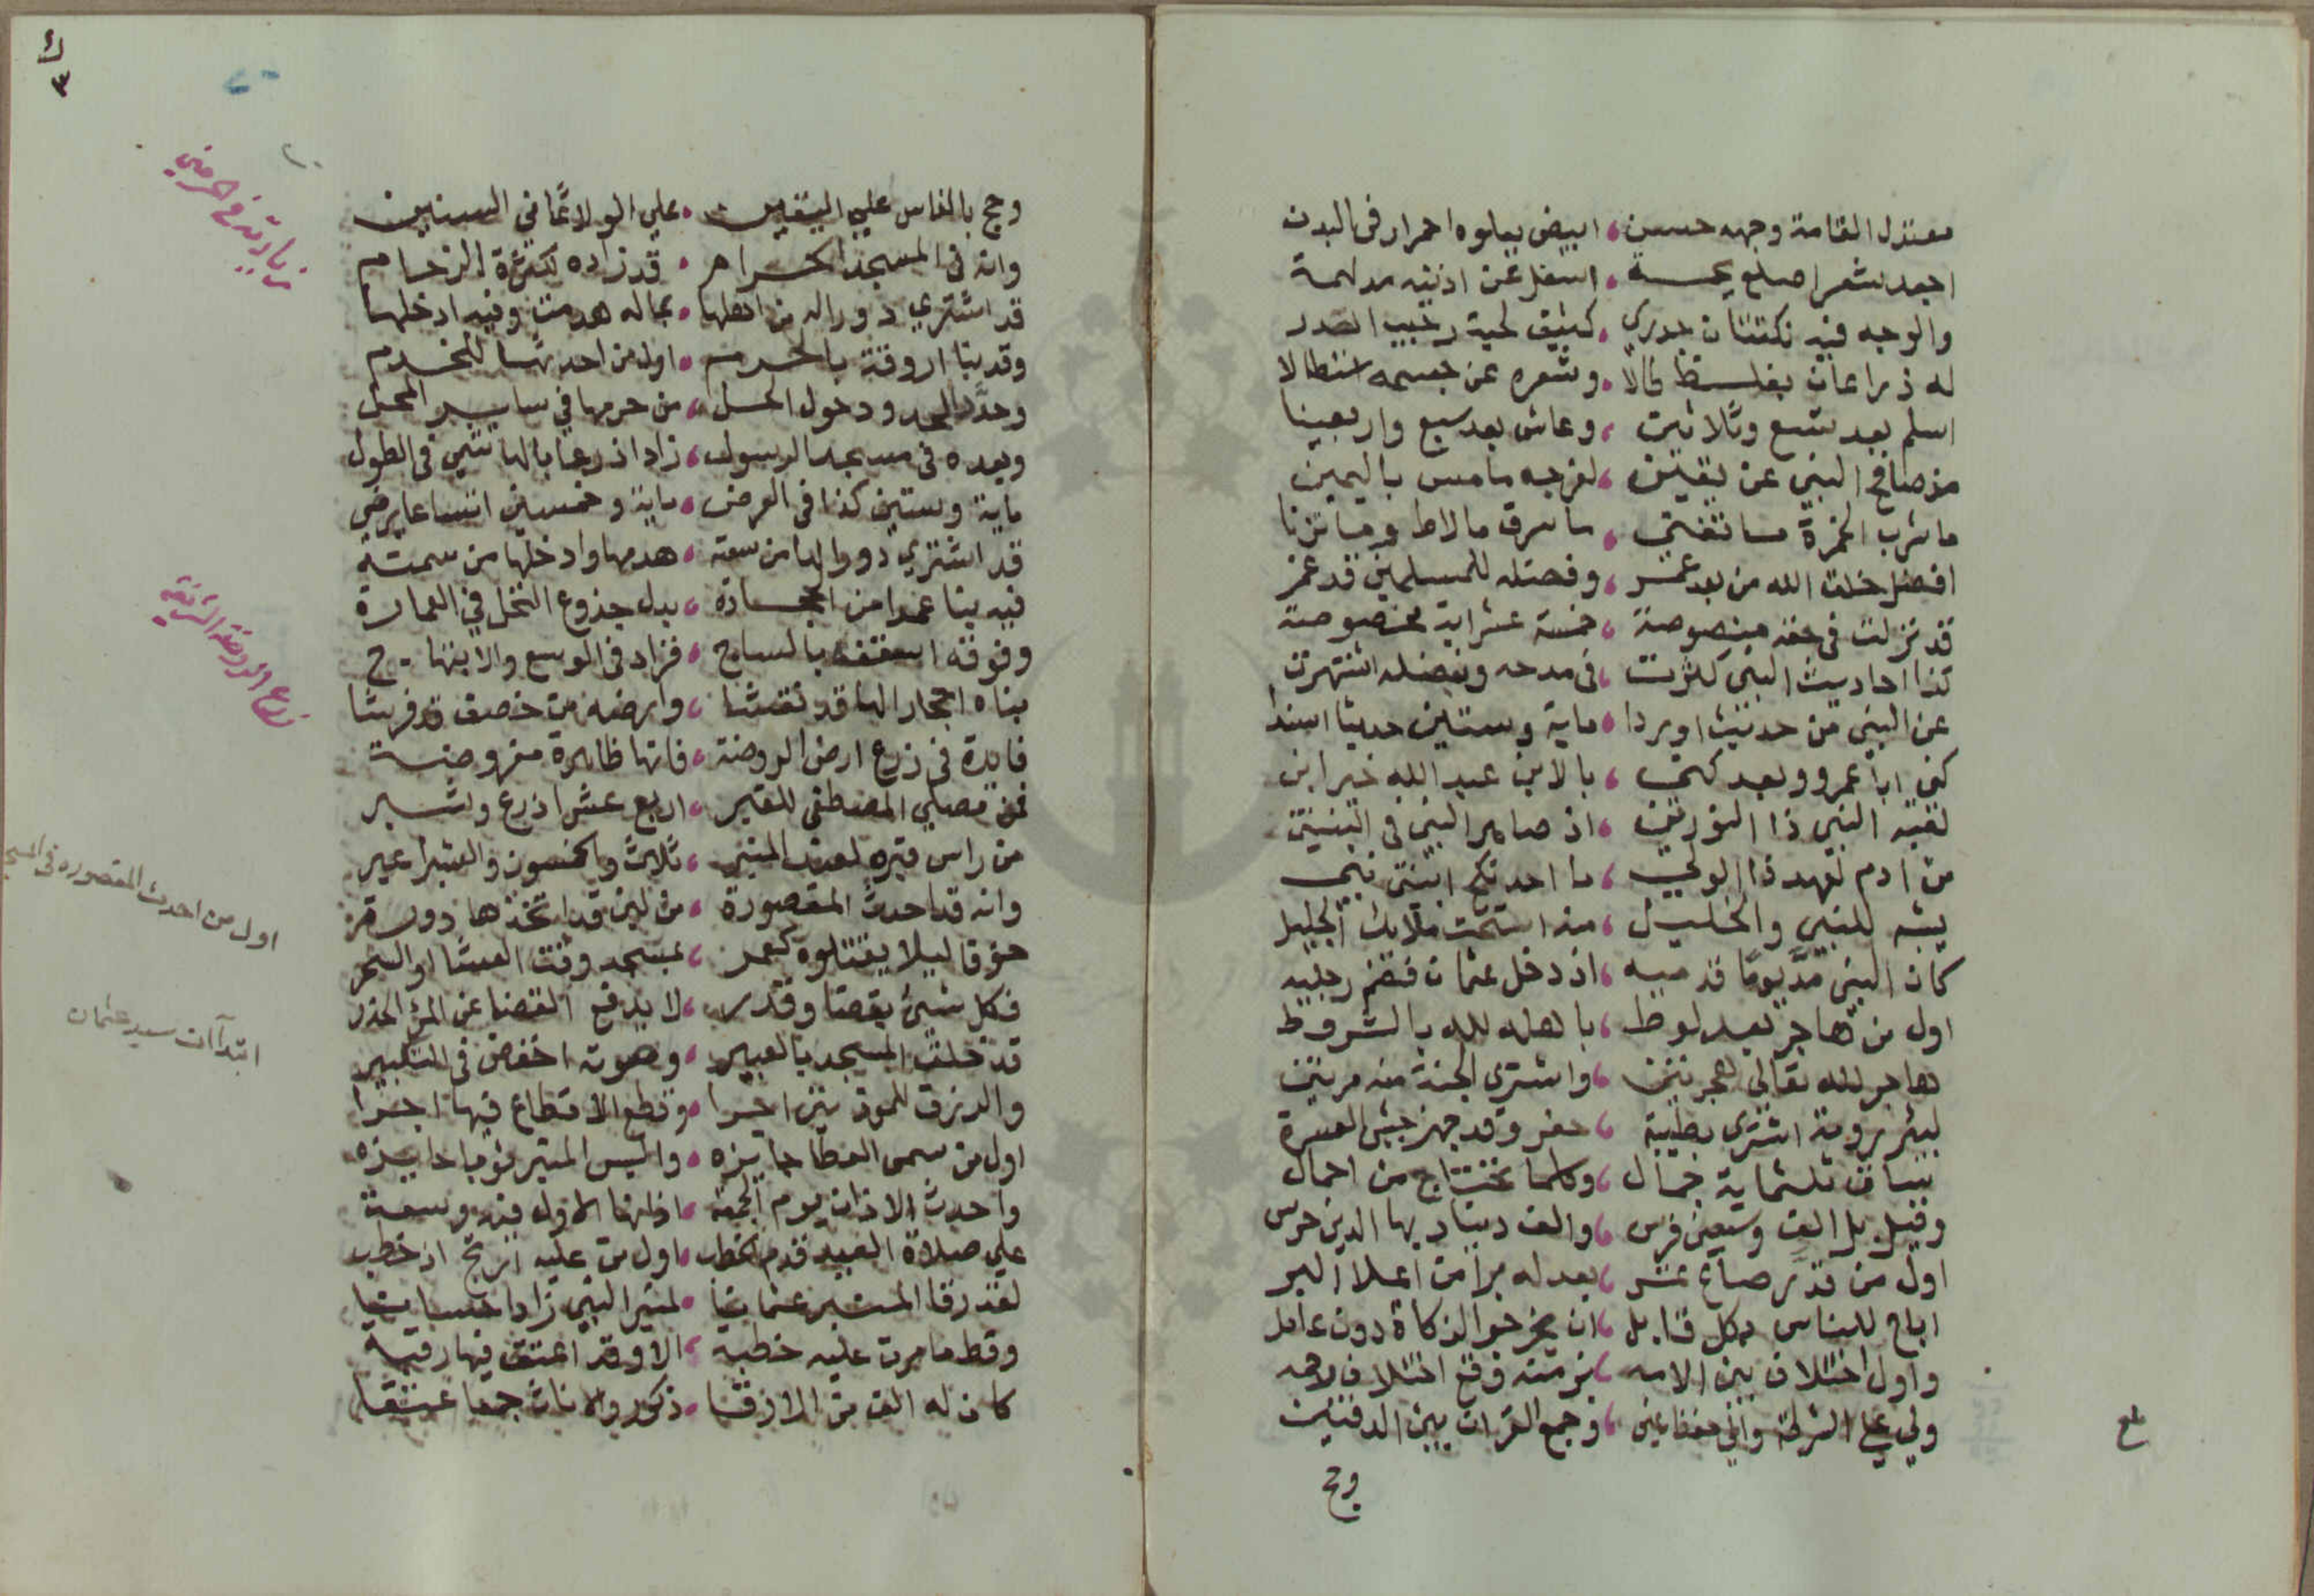 معتدل القامة وجهه حسن ، ابيض يعلوه احمرار فى البدن
اجعد شعر اصلع بجسمه ، اسفل عن اذنيه مدلهمة
والوجه فيه نكتتان جدري ، كثيف لحية رحيب الصدر
له ذراعان بغلظ طالا ، وشعره عن جسمه استطالا
اسلم بعد تسع وثلاثين ، وعاش بعد سبع واربعينا
مذ صافح النبي عن يقين ، لفرجه ما مس باليمين
ما شرب الخمرة ما تغنى ، ما سرق ما لاط وما تزنا
افضل خلق الله من بعد عمر ، وفضله للمسلمين قد غمر
قد نزلت فى حقه منصوصة ، خمسة عشر اية مخصوصة
كذا احاديث النبى كثرت ، فى مدحه وبفضله اشتهرت
عن النبى من حديث اوردا ، ماية وستين حديثا اسندا
كنى ابا عمرو وبعد كنى ، بالابن عبد الله خير ابن
لقبه النبى ذا النورين ، اذ صاهر النبى فى البنتين
من ادم لعهد ذا الولى ، ما احد نكح ابنتى نبى
يشبه للنبى والخليل ، منه استحت ملايك الجليل
كان النبى مد يوما قدميه ، اذ دخل عثمان فضم رجليه
اول من هاجر بعد لوط ، باهله لله بالشروط
هاجر لله تعالى هجرتين ، واشترى الجنة منه مرتين
لبئر رومة اشترى بطيبة ، حفر وقد جهز جيش العسرة
بساق ثلثماية جمال ، وكلما تحتاج من احمال
وقيل بل الف وسبعين فرس ، والف دينار بها الدين حرس
اول من قدر صاع عشر ، بعد له برا من اعلا البر
اباح للناس بكل قابل ، ان يخرجوا الزكاة دون عامل
واول اختلاف بين الامه ، بزمنه وقع اختلاف لاحمه
ولي على الشرطة وانى حفظ عين ، وجمع القران بين الدفتين
وحج
بلغ
وحج بالناس على اليقين ، على الولا ثمانى السنين
وانه فى المسجد الحرام ، قد زاده لكثرة الزحام
قد اشترى دورا له من اهلها ، بماله هدمت وفيه ادخلها
وقد بنا اروقة بالحرم ، اول من احدثها للخدم
وحدد الحدود حول الحل ، من حرمها فى ساير المحل
وبعده فى مسجد الرسول ، زاد اذرعا بالهاشمى فى الطول
ماية وستين كذا فى العرض ، ماية وخمسين اتساعا يرضى
قد اشترى دورا لها من سعته ، هدمها وادخلها من سمته
فيه بنا عمدا من الحجارة ، بدل جذوع النخل فى العمارة
وفوقه اسقفه بالساج ، فزاد فى الوسع والابتهاج
بناه احجارا لها قد نقشا ، وارضه من خصف قد فرشا
فايدة فى ذرع ارض الروضة ، فانها ظاهرة مفروضة
فمن مصلى المصطفى للقبر ، اربع عشر اذرع وشبر
من راس قبره لعند المنبر ، ثلاث والخمسون والقيرا عير
وانه قد احدث المقصورة ، من لبن قد اتخذها دور سقره
خوفا ليلا يقتلوه كعمر ، بمسجد وقت العشا او السحر
فكل شىء بقضا وقدر ، لا يدفع القضا عن المرء الحذر
قد خلق المسجد بالعبير ، وصوته اخفض فى التكبير
والرزق للموذنين اجرا ، وقطع الاقطاع فيها اجرا
اول من سمى العطا جايزه ، والبس المنبر ثوبا حايزه
واحدث الاذان يوم الجمعة ، اذانها الاول فيه وسعة
على صلاة العيد قدم الخطب ، اول من عليه ارتج اذ خطب
لقد رقا المنبر عثمانيا ، لمنبر النبى زاد احسانيا
وقط ما مرت عليه خطبة ، الا وقد اعتق فيها رقبة
كان له الف من الارقا ، ذكور والاناث جمعا عتقا
٣
زيادته فى الحرمين
ذرع الروضة الشريفة
اول من احدث المقصوره فى المسجد
ابتدآات سيد عثمان